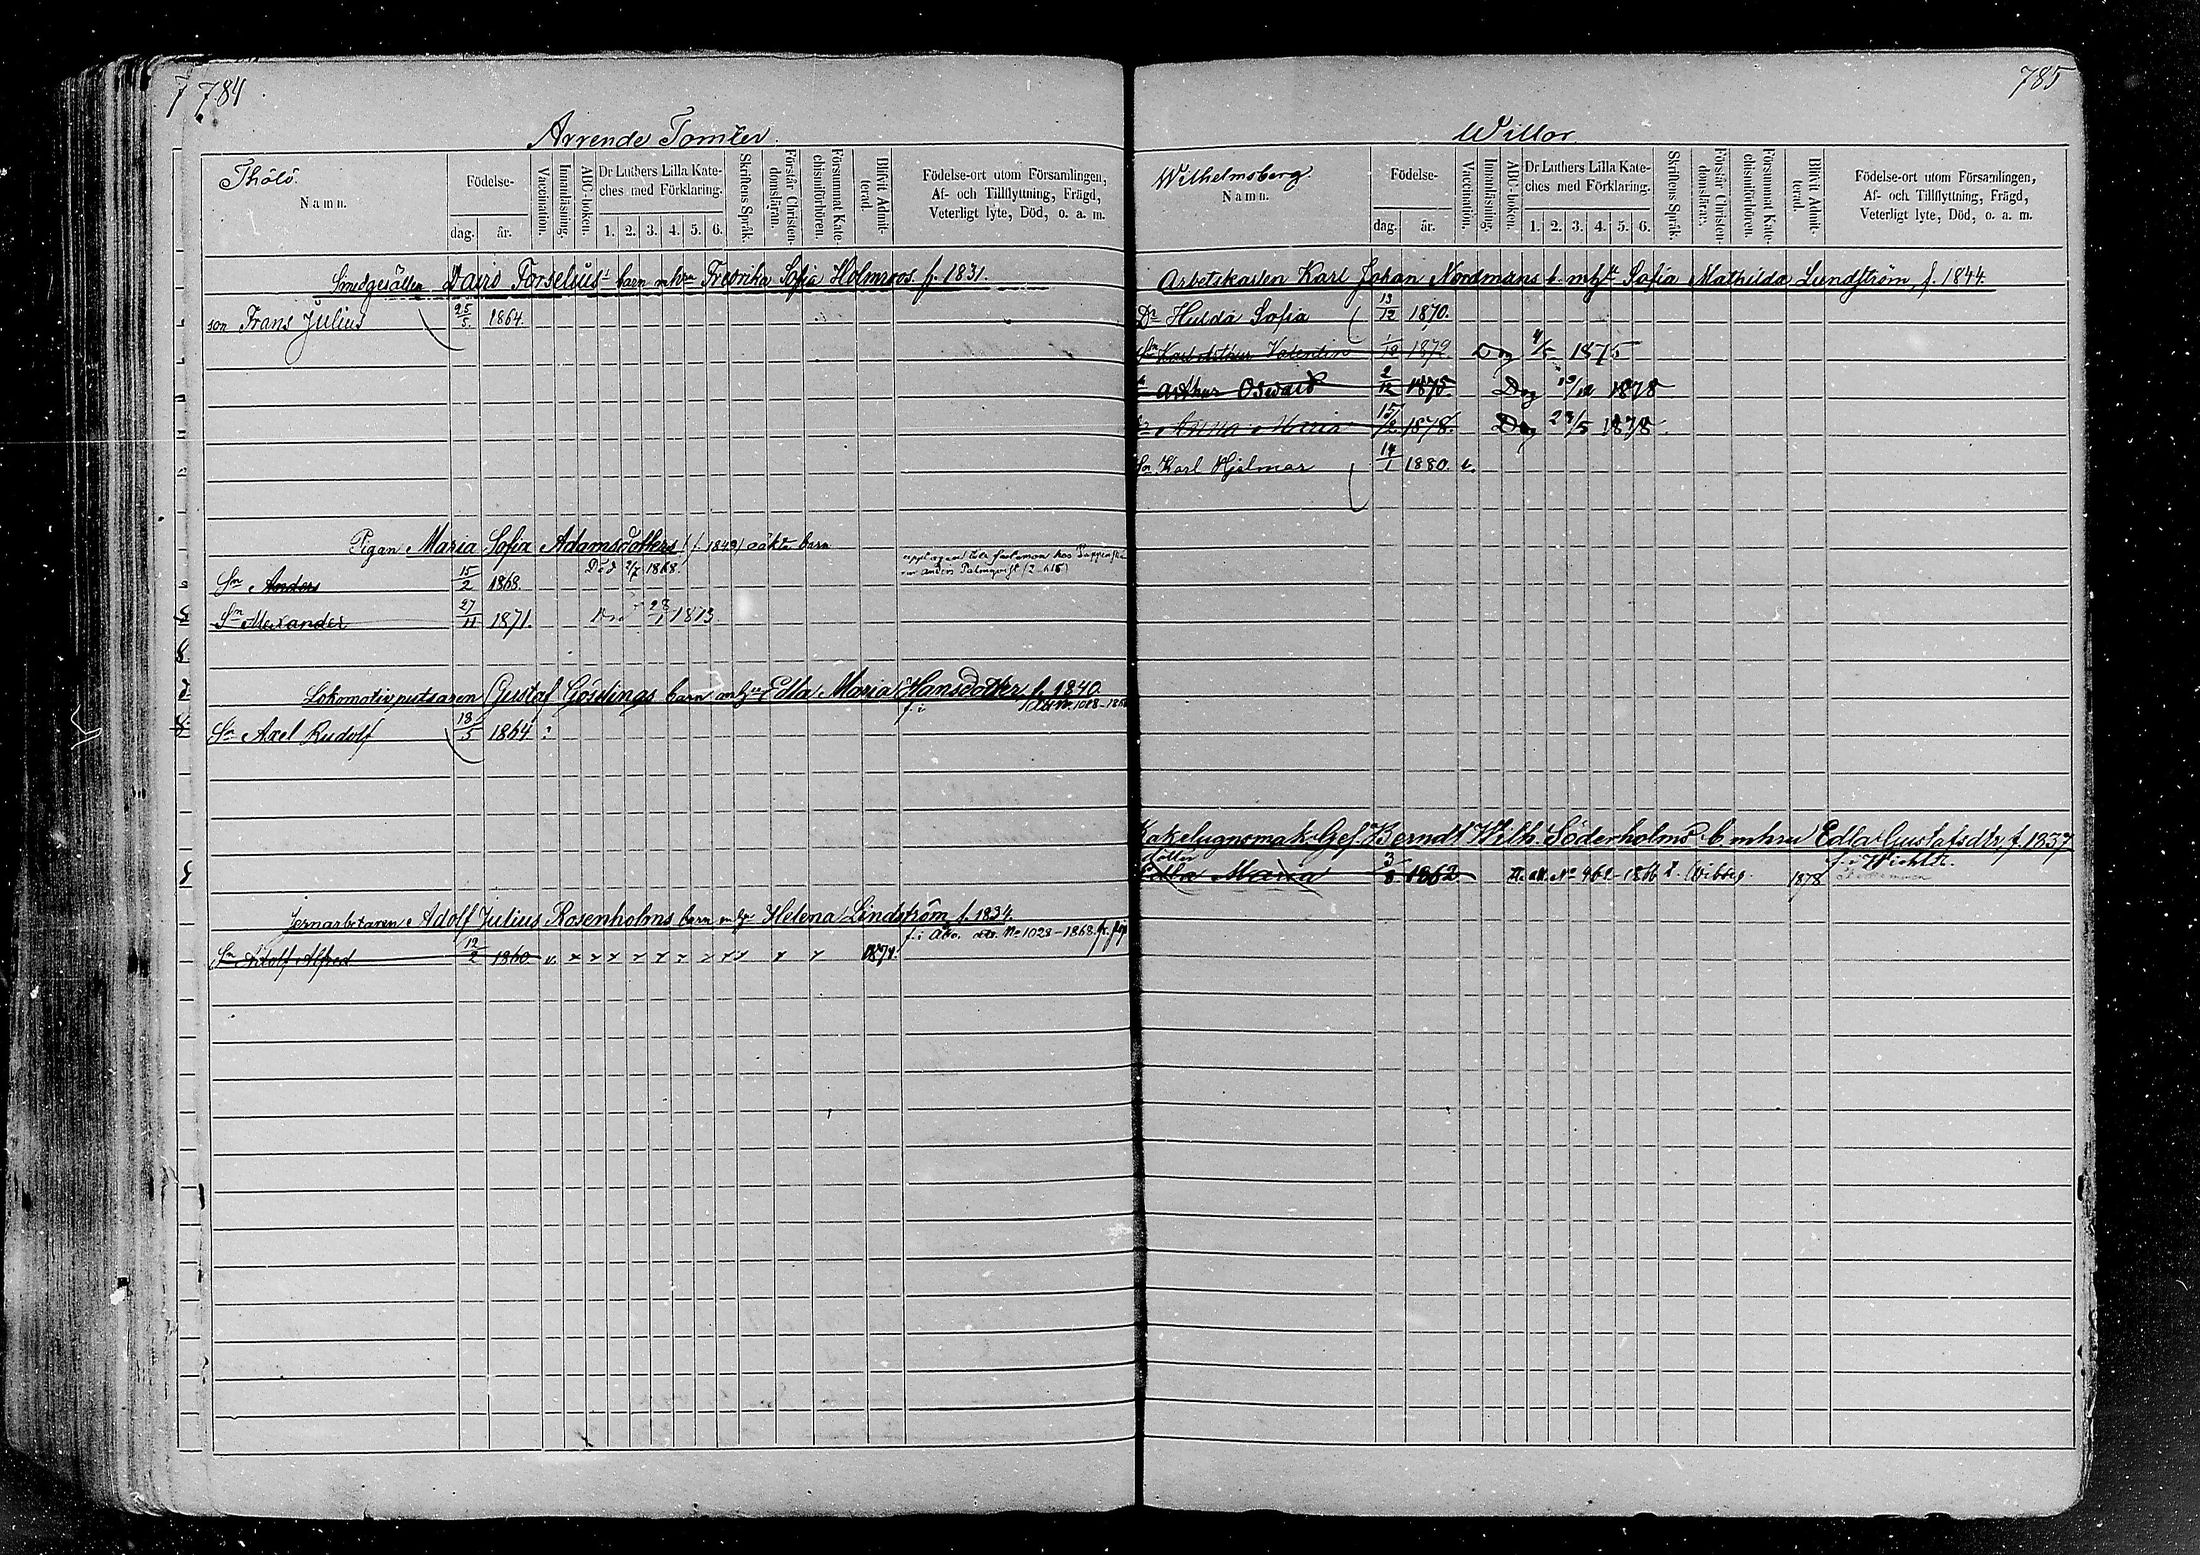 784
Arrende Tomter.
Thölö.
Namn.
Födelse-
dag. år.
Vaccination.
Innanläsning.
ABC-boken.
Dr Luthers Lilla Kate-
ches med Förklaring.
1. 2. 3. 4. 5. 6.
Skriftens Språk.
Förstår Christen-
domsläran.
Försummat Kate-
chismiförhören.
Blifvit Admit-
terad.
Födelse-ort utom Församlingen,
Af- och Tillflyttning, Frägd,
Veterligt lyte, Död, o. a. m.
Smedgesällen David Forselius' barn m hu Fredrika Sofia Holmroos f. 1831.
son Frans Julius 25/5. 1864.
Pigan Maria Sofia Adamsdotters (f. 1849) oäkta barn
Sn Anders 15/2 1868. Död 2/7 1868.
Sn Alexander 27/11 1871. 28/1 1873
Lokomotivputsaren Gustaf Göslings barn m hu Edla Maria Hansdotter f. 1840.
f. i 1028-1868
Sn Axel Rudolf 18/5 1864
Jernarbetaren Adolf Julius Rosenholms barn m hu Helena Lindström f. 1834.
f. i Åbo. No 1028-1868.
Sn Adolf Alfred 12/2 1860. v. x x x x x x x x x x x 1874.
785
Willor.
Wilhelmsberg
Namn.
Födelse-
dag. år.
Vaccination.
Innanläsning.
ABC-boken.
Dr Luthers Lilla Kate-
ches med Förklaring.
1. 2. 3. 4. 5. 6.
Skriftens Språk.
Förstår Christen-
domsläran.
Försummat Kate-
chismiförhören.
Blifvit Admit-
terad.
Födelse-ort utom Församlingen,
Af- och Tillflyttning, Frägd,
Veterligt lyte, Död, o. a. m.
Arbetskarlen Karl Johan Nordmans b. m h Sofia Mathilda Lundström, f. 1844.
Dr Hulda Sofia 13/12 1870.
Sn Karl Arthur Valentin 1872 Dog 4/5 1875
Arthur Oswald 2/12 1875. Dog 1878
Anna Maria 15/2 1878. Dog 23/5 1878.
Sn Karl Hjalmar 14/1 1880. v.
Kakelugnsmak. Ges. Berndt Wilh. Söderholms b. m hu Edla Gustafsdtr f. 1837
dotter
Edla Maria 3/8 1862 No 962-1866 Wiborg. 1878